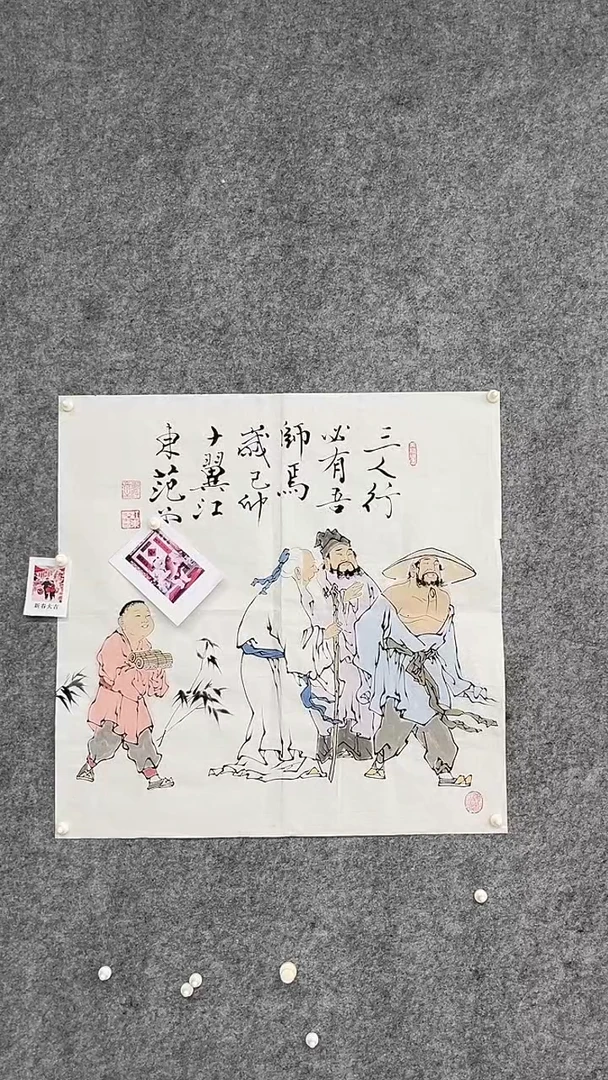 三人行
必有吾
師焉
歲己卯
十翼江
東范
新春大吉